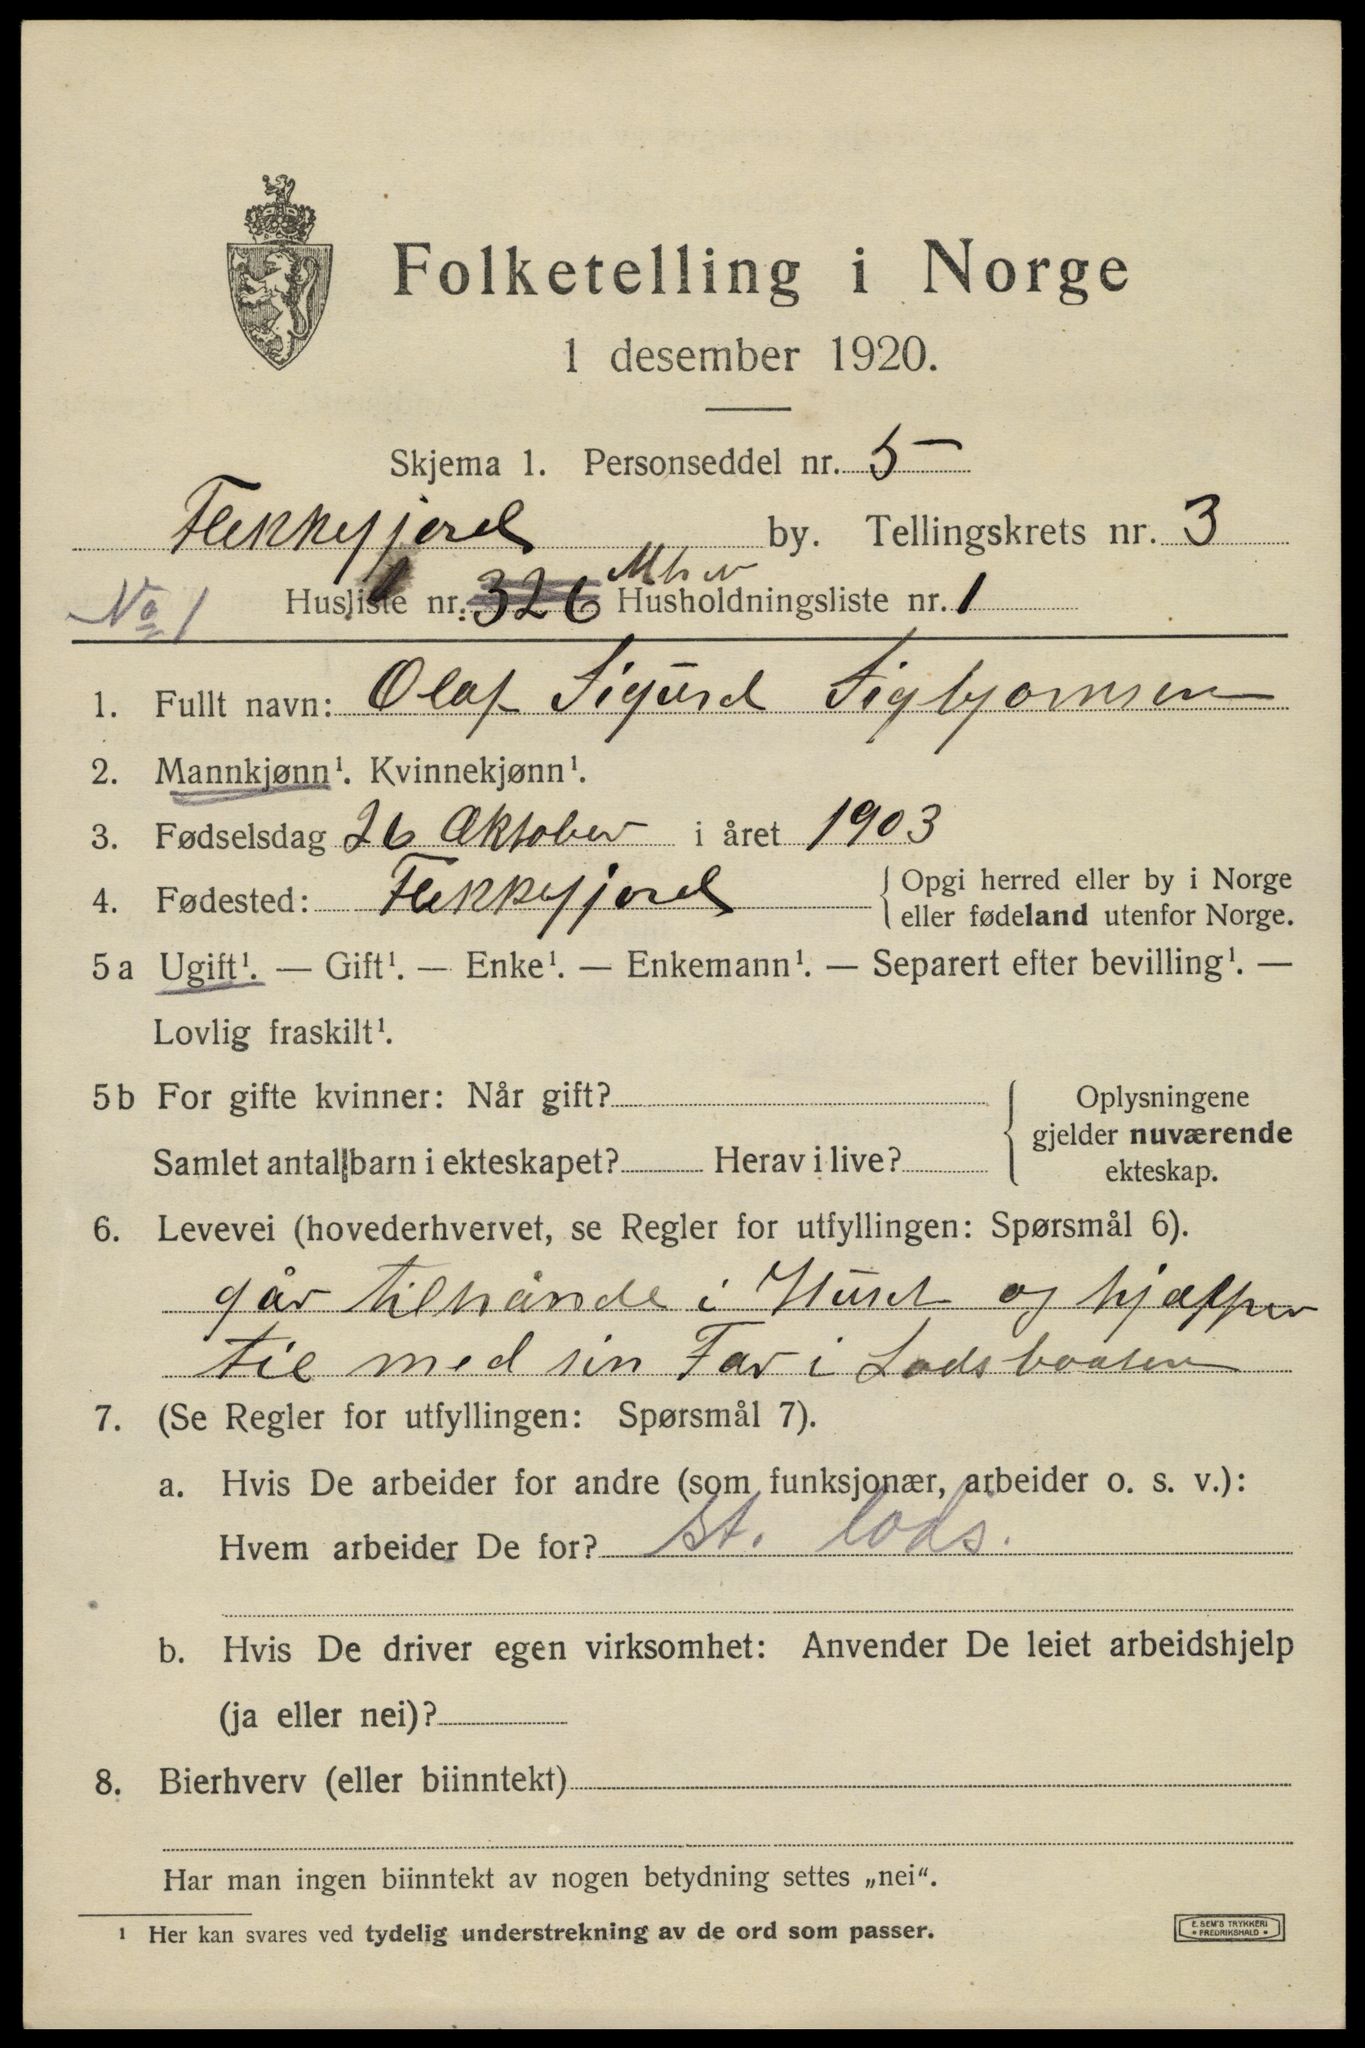 Folketelling i Norge
1 desember 1920.
Skjema 1. Personseddel nr. 5
Flekkefjord by. Tellingskrets nr. 3
No 1 Husliste nr. 326 Husholdningsliste nr. 1
1. Fullt navn: Olaf Sigurd Sigbjørnsen
2. Mannkjønn¹. Kvinnekjønn¹.
3. Fødselsdag 26 Oktober i året 1903
4. Fødested: Flekkefjord { Opgi herred eller by i Norge
eller fødeland utenfor Norge.
5 a Ugift¹. — Gift¹. — Enke¹. — Enkemann¹. — Separert efter bevilling¹. —
Lovlig fraskilt¹.
5 b For gifte kvinner: Når gift? { Oplysningene
gjelder nuværende
Samlet antal barn i ekteskapet? Herav i live?
ekteskap.
6. Levevei (hovederhvervet, se Regler for utfyllingen: Spørsmål 6).
går tilhånde i Huset og hjælper
til med sin Far i Lodsbaaten
7. (Se Regler for utfyllingen: Spørsmål 7).
a. Hvis De arbeider for andre (som funksjonær, arbeider o. s. v.):
Hvem arbeider De for? st. lods.
b. Hvis De driver egen virksomhet: Anvender De leiet arbeidshjelp
(ja eller nei)?
8. Bierhverv (eller biinntekt)
Har man ingen biinntekt av nogen betydning settes „nei“.
¹ Her kan svares ved tydelig understrekning av de ord som passer.
E. SEM'S TRYKKERI
* FREDRIKSHALD *